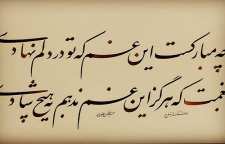 چه مبارکست این غم که تو در دلم نهادی
غمت که هرگز این غم ندهم به هیچ شادی